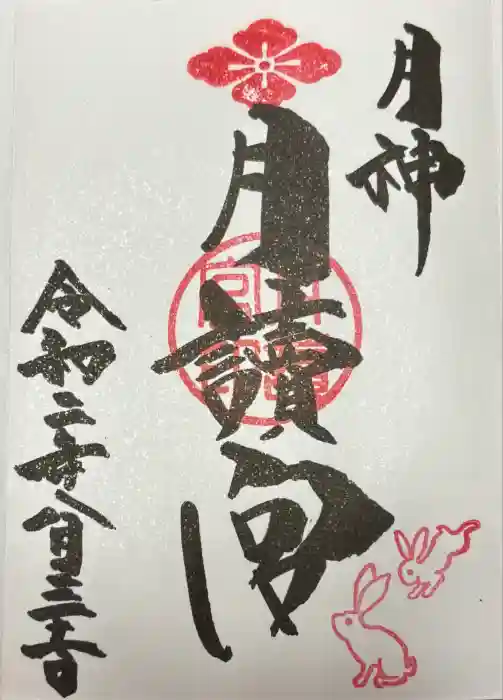 月神
月讀宮
令和二年八月三十日